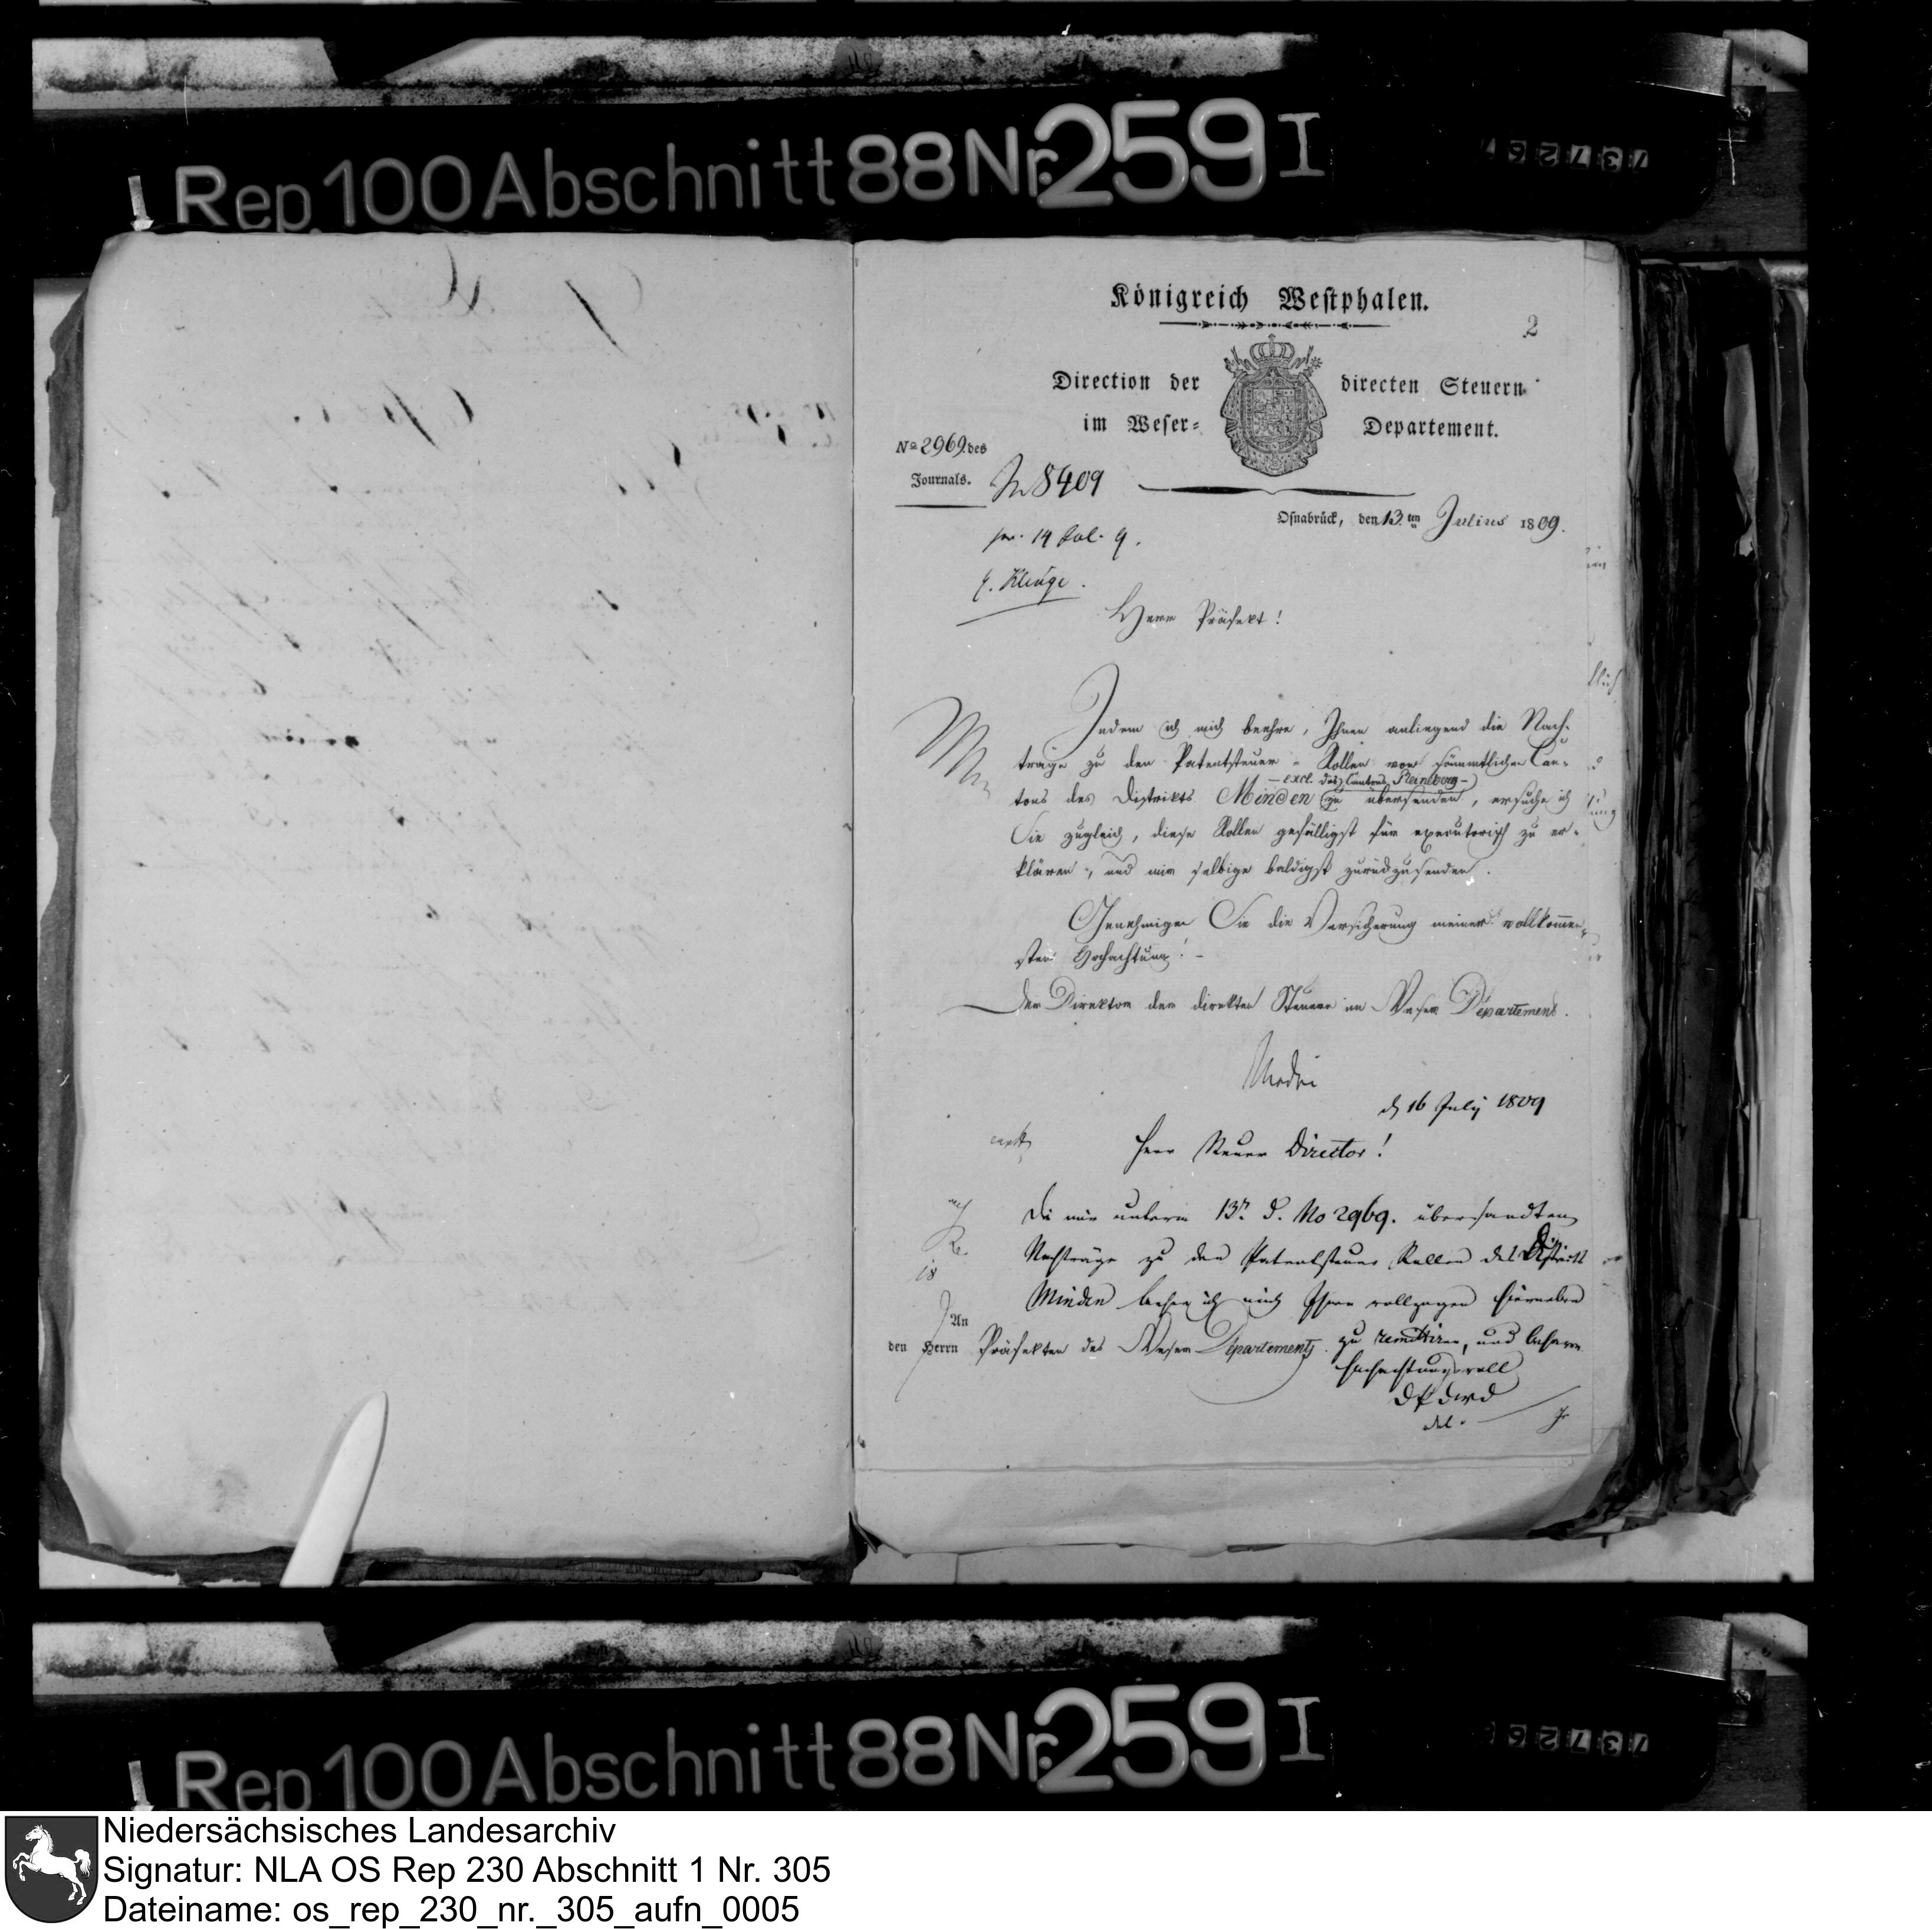 Rep. 100 Abschnitt 88 Nr. 259 I
Königreich Westphalen.
2
Direction der directen Steuern
im Weser- Departement.
No 2969. des
Journals.
8409
Osnabrück, den 13ten Julius 1809.
pr. 14 Jul. 9.
Herr Präfekt!
Indem ich mich beehre, Ihnen anliegend die Nach-
träge zu den Patentsteuer-Rollen von sämmtlichen Can-
- excl. des Cantons -
tons des Distrikts Minden zu übersenden, ersuche ich
Sie zugleich, diese Rollen gefälligst für executorisch zu er-
klären, und mir selbige baldigst zurückzusenden.
Genehmigen Sie die Versicherung meiner vollkommen-
sten Hochachtung! -
Der Direktor der direkten Steuern im Weser Département.
d 16 July 1809
Herr Steuer Director!
Die mir unterm 13n d. No 2969. übersandten
Nachträge zu den Patentsteuer Rollen des Districts
Minden beehre ich mich Ihnen vollzogen hierneben
zu remittiren, und beharre
hochachtungsvoll
An
den Herrn Präfekten des Weser Départements.
Rep. 100 Abschnitt 88 Nr. 259 I
Niedersächsisches Landesarchiv
Signatur: NLA OS Rep 230 Abschnitt 1 Nr. 305
Dateiname: os_rep_230_nr._305_aufn_0005